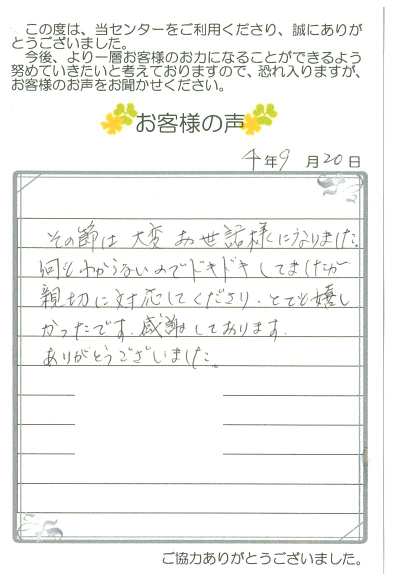 この度は、当センターをご利用くださり、誠にありが
とうございました。
今後、より一層お客様のお力になることができるよう
努めていきたいと考えておりますので、恐れ入りますが、
お客様のお声をお聞かせください。
お客様の声
4年9月20日
その節は大変お世話様になりました。
何もわからないのでドキドキしてましたが
親切に対応してくださり、とても嬉し
かったです。感謝しております。
ありがとうございました。
ご協力ありがとうございました。